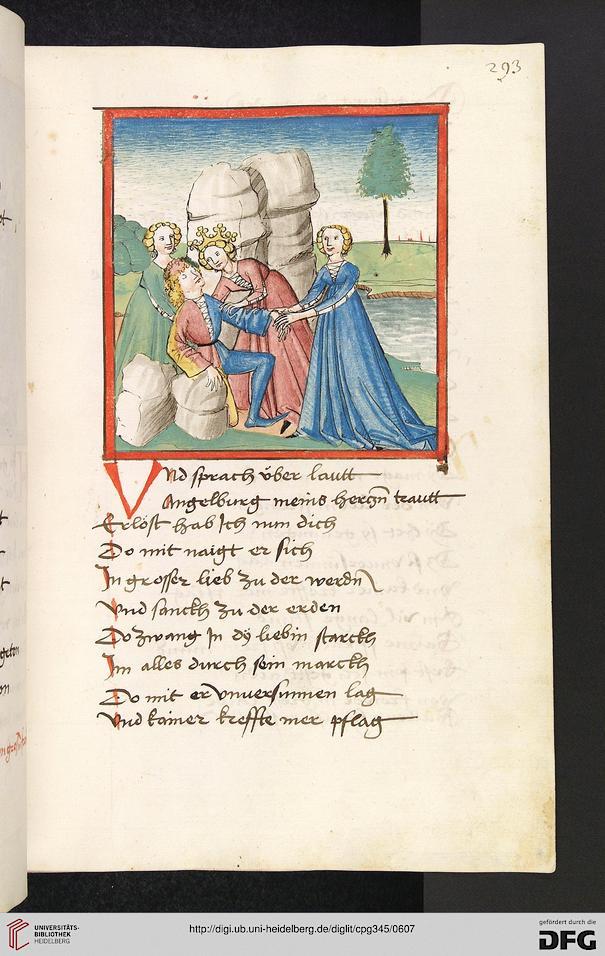 293
Vnd sprach über lautt
Angelburg meins herczn trautt
Erlöst hab Ich nun dich
Do mit naigt er sich
In grosser lieb zu der werdn
Vnd sanckh zu der erden
Do zwang In dÿ liebin starckh
Im alles durch sein marckh
Do mit er vnuersunnen lag
Vnd kainer kreffte mer pflag
UNIVERSITÄTS-
BIBLIOTHEK
HEIDELBERG
http://digi.ub.uni-heidelberg.de/diglit/cpg345/0607
gefördert durch die
DFG